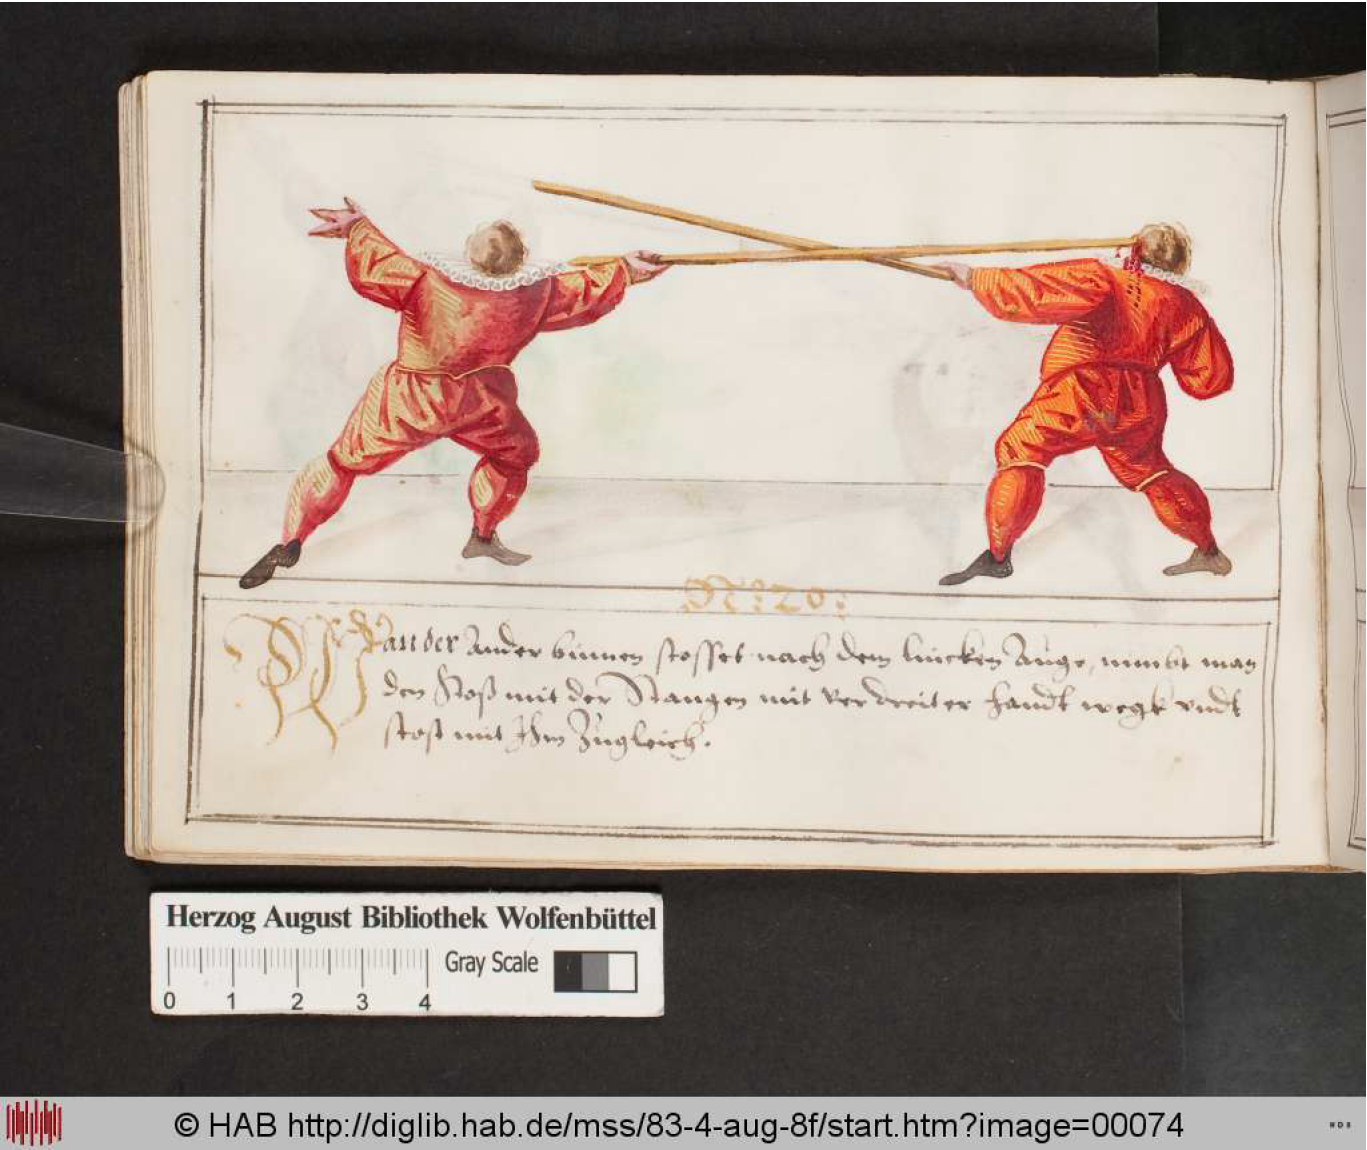 N: 20:
Wan der Ander binnen stosset nach dem lincken Auge, nimbt man
den Stoß mit der Stangen mit verdreiter handt wegk vndt
stost mit Ihm Zugleich.
Herzog August Bibliothek Wolfenbüttel
Gray Scale
0 1 2 3 4
© HAB http://diglib.hab.de/mss/83-4-aug-8f/start.htm?image=00074